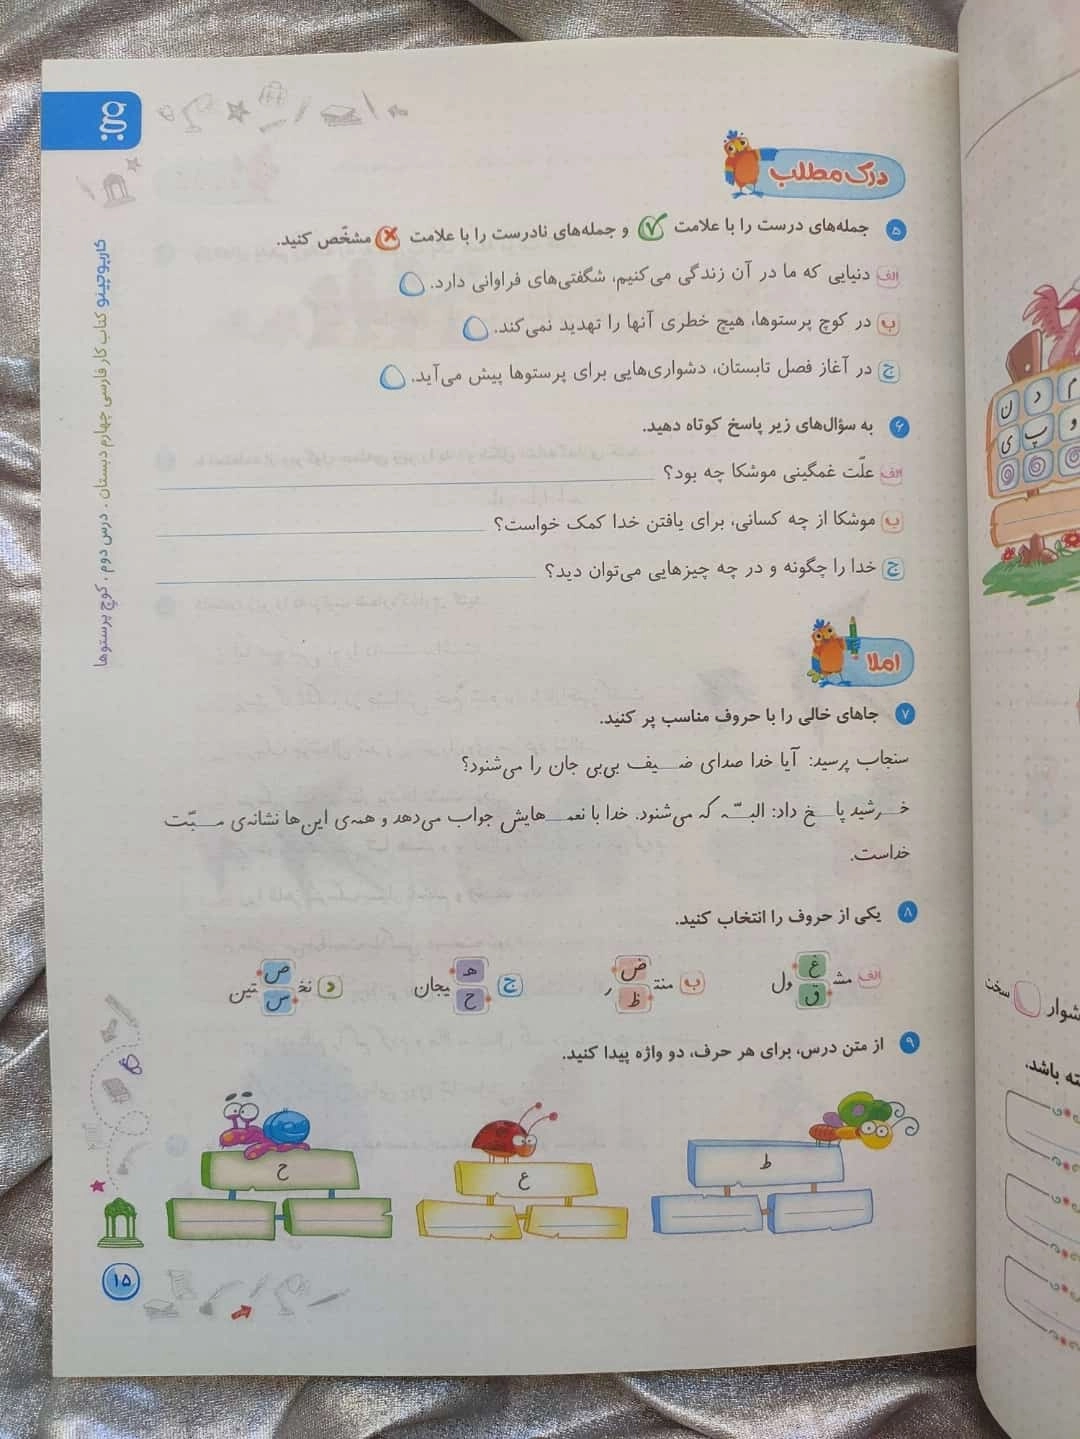 درک مطلب
۵ جمله‌های درست را با علامت ✓ و جمله‌های نادرست را با علامت ✗ مشخّص کنید.
الف دنیایی که ما در آن زندگی می‌کنیم، شگفتی‌های فراوانی دارد.
ب در کوچ پرستوها، هیچ خطری آنها را تهدید نمی‌کند.
ج در آغاز فصل تابستان، دشواری‌هایی برای پرستوها پیش می‌آید.
۶ به سؤال‌های زیر پاسخ کوتاه دهید.
الف علّت غمگینی موشکا چه بود؟
ب موشکا از چه کسانی، برای یافتن خدا کمک خواست؟
ج خدا را چگونه و در چه چیزهایی می‌توان دید؟
املا
۷ جاهای خالی را با حروف مناسب پر کنید.
سنجاب پرسید: آیا خدا صدای ضـ__ـیف بی‌بی جان را می‌شنود؟
خـ__ـرشید پا__خ داد: البـّـ__ـه که می‌شنود. خدا با نعمـ__ـهایش جواب می‌دهد و همه‌ی این‌ها نشانه‌ی مـ__ـبّت
خداست.
۸ یکی از حروف را انتخاب کنید.
الف مشـ غ ق ول ب منتـ ض ظ ر ج هـ ح یجان د نخـ ص س تین
۹ از متن درس، برای هر حرف، دو واژه پیدا کنید.
ط ع ح
کارپوچینو کتاب کار فارسی چهارم دبستان . درس دوم . کوچ پرستوها
۱۵
م د ن
و پ ی
شوار سخت
ته باشد.